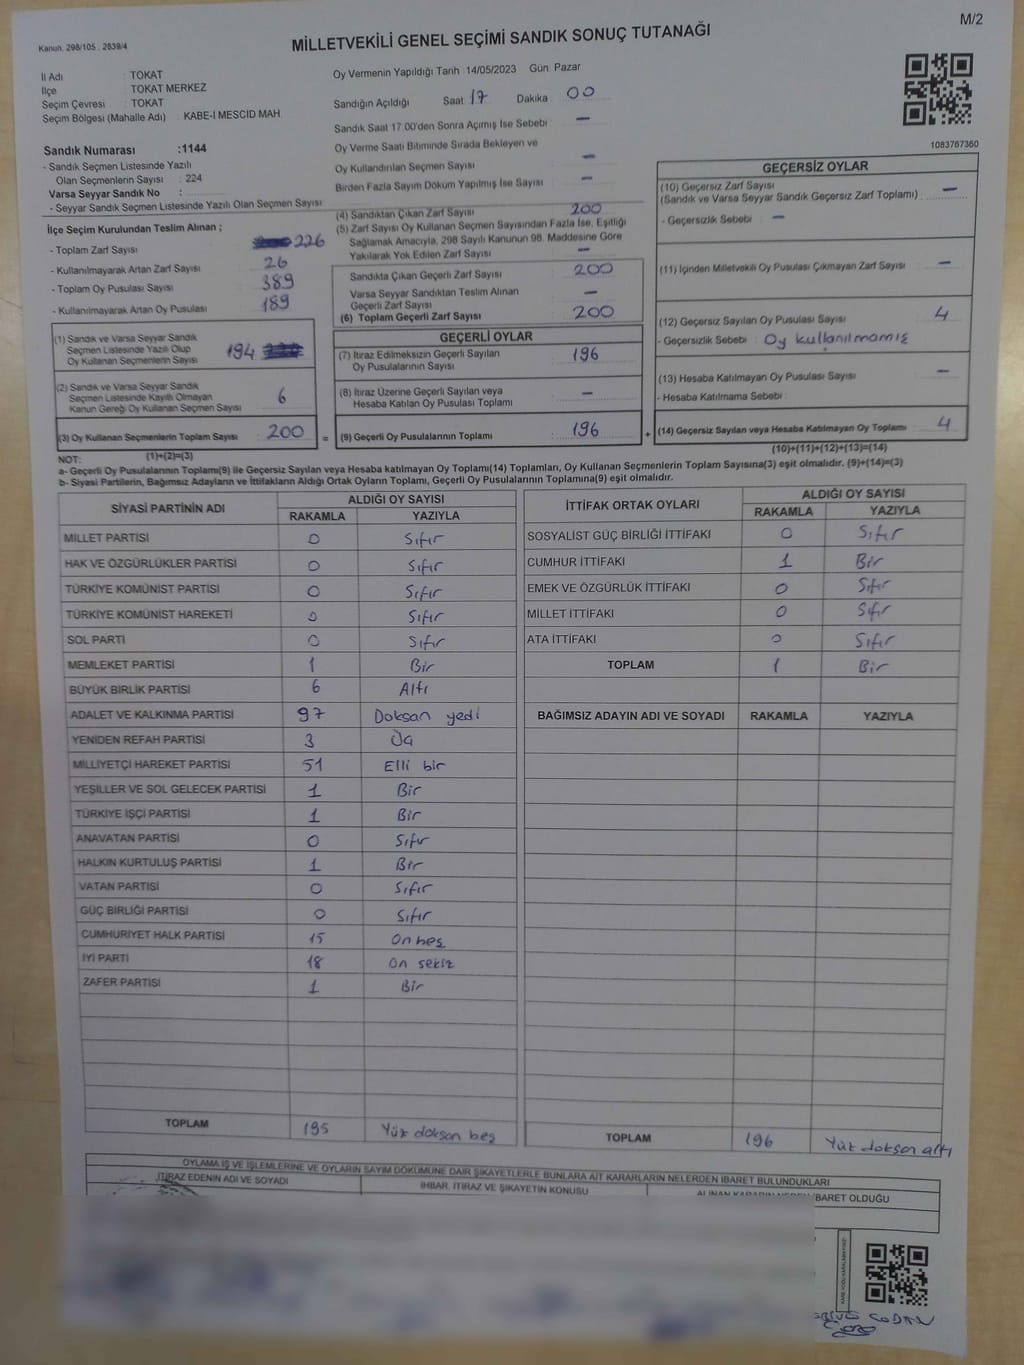 M/2
Kanun. 298/105 , 2839/4
MİLLETVEKİLİ GENEL SEÇİMİ SANDIK SONUÇ TUTANAĞI
İl Adı : TOKAT
İlçe : TOKAT MERKEZ
Seçim Çevresi : TOKAT
Seçim Bölgesi (Mahalle Adı) : KABE-İ MESCİD MAH
Sandık Numarası :1144
- Sandık Seçmen Listesinde Yazılı
Olan Seçmenlerin Sayısı : 224
Varsa Seyyar Sandık No :
- Seyyar Sandık Seçmen Listesinde Yazılı Olan Seçmen Sayısı
Oy Vermenin Yapıldığı Tarih :14/05/2023 Gün: Pazar
Sandığın Açıldığı Saat 17 Dakika 00
Sandık Saat 17.00'den Sonra Açımış İse Sebebi —
Oy Verme Saati Bitiminde Sırada Bekleyen ve
Oy Kullandırılan Seçmen Sayısı —
Birden Fazla Sayım Döküm Yapılmış İse Sayısı —
1083767360
İlçe Seçim Kurulundan Teslim Alınan ;
- Toplam Zarf Sayısı 226
- Kullanılmayarak Artan Zarf Sayısı 26
- Toplam Oy Pusulası Sayısı 389
- Kullanılmayarak Artan Oy Pusulası 189
(1) Sandık ve Varsa Seyyar Sandık
Seçmen Listesinde Yazılı Olup
Oy Kullanan Seçmenlerin Sayısı 194
(2) Sandık ve Varsa Seyyar Sandık
Seçmen Listesinde Kayıtlı Olmayan
Kanun Gereği Oy Kullanan Seçmen Sayısı 6
(3) Oy Kullanan Seçmenlerin Toplam Sayısı 200 =
(1)+(2)=(3)
(4) Sandıktan Çıkan Zarf Sayısı 200
(5) Zarf Sayısı Oy Kullanan Seçmen Sayısından Fazla İse, Eşitliği
Sağlamak Amacıyla, 298 Sayılı Kanunun 98. Maddesine Göre
Yakılarak Yok Edilen Zarf Sayısı —
Sandıkta Çıkan Geçerli Zarf Sayısı 200
Varsa Seyyar Sandıktan Teslim Alınan
Geçerli Zarf Sayısı —
(6) Toplam Geçerli Zarf Sayısı 200
GEÇERLİ OYLAR
(7) İtiraz Edilmeksizin Geçerli Sayılan
Oy Pusulalarının Sayısı 196
(8) İtiraz Üzerine Geçerli Sayılan veya
Hesaba Katılan Oy Pusulası Toplamı —
(9) Geçerli Oy Pusulalarının Toplamı 196 +
GEÇERSİZ OYLAR
(10) Geçersiz Zarf Sayısı
(Sandık ve Varsa Seyyar Sandık Geçersiz Zarf Toplamı) : —
- Geçersizlik Sebebi : —
(11) İçinden Milletvekili Oy Pusulası Çıkmayan Zarf Sayısı : —
(12) Geçersiz Sayılan Oy Pusulası Sayısı : 4
- Geçersizlik Sebebi : Oy kullanılmamış
(13) Hesaba Katılmayan Oy Pusulası Sayısı : —
- Hesaba Katılmama Sebebi :
(14) Geçersiz Sayılan veya Hesaba Katılmayan Oy Toplamı : 4
(10)+(11)+(12)+(13)=(14)
NOT:
a- Geçerli Oy Pusulalarının Toplamı(9) ile Geçersiz Sayılan veya Hesaba katılmayan Oy Toplamı(14) Toplamları, Oy Kullanan Seçmenlerin Toplam Sayısına(3) eşit olmalıdır. (9)+(14)=(3)
b- Siyasi Partilerin, Bağımsız Adayların ve İttifakların Aldığı Ortak Oyların Toplamı, Geçerli Oy Pusulalarının Toplamına(9) eşit olmalıdır.
SİYASİ PARTİNİN ADI ALDIĞI OY SAYISI
RAKAMLA YAZIYLA
MİLLET PARTİSİ 0 Sıfır
HAK VE ÖZGÜRLÜKLER PARTİSİ 0 Sıfır
TÜRKİYE KOMÜNİST PARTİSİ 0 Sıfır
TÜRKİYE KOMÜNİST HAREKETİ 0 Sıfır
SOL PARTİ 0 Sıfır
MEMLEKET PARTİSİ 1 Bir
BÜYÜK BİRLİK PARTİSİ 6 Altı
ADALET VE KALKINMA PARTİSİ 97 Doksan yedi
YENİDEN REFAH PARTİSİ 3 Üç
MİLLİYETÇİ HAREKET PARTİSİ 51 Elli bir
YEŞİLLER VE SOL GELECEK PARTİSİ 1 Bir
TÜRKİYE İŞÇİ PARTİSİ 1 Bir
ANAVATAN PARTİSİ 0 Sıfır
HALKIN KURTULUŞ PARTİSİ 1 Bir
VATAN PARTİSİ 0 Sıfır
GÜÇ BİRLİĞİ PARTİSİ 0 Sıfır
CUMHURİYET HALK PARTİSİ 15 On beş
İYİ PARTİ 18 On sekiz
ZAFER PARTİSİ 1 Bir
TOPLAM 195 Yüz doksan beş
İTTİFAK ORTAK OYLARI ALDIĞI OY SAYISI
RAKAMLA YAZIYLA
SOSYALİST GÜÇ BİRLİĞİ İTTİFAKI 0 Sıfır
CUMHUR İTTİFAKI 1 Bir
EMEK VE ÖZGÜRLÜK İTTİFAKI 0 Sıfır
MİLLET İTTİFAKI 0 Sıfır
ATA İTTİFAKI 0 Sıfır
TOPLAM 1 Bir
BAĞIMSIZ ADAYIN ADI VE SOYADI RAKAMLA YAZIYLA
TOPLAM 196 Yüz doksan altı
OYLAMA İŞ VE İŞLEMLERİNE VE OYLARIN SAYIM DÖKÜMÜNE DAİR ŞİKAYETLERLE BUNLARA AİT KARARLARIN NELERDEN İBARET BULUNDUKLARI
İTİRAZ EDENİN ADI VE SOYADI İHBAR, İTİRAZ VE ŞİKAYETİN KONUSU ALINAN KARARIN NEDEN İBARET OLDUĞU